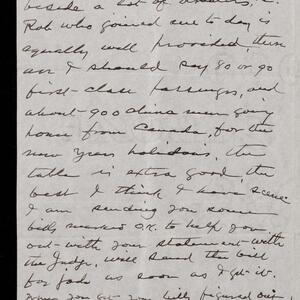 beside a lot of
Rob who joined us to day is
equally well provided, there
are I should say 80 or 90
first-class passengers, and
about 900 china men going
home from Canada, for the
new Years holidays, the
table is extra good, the
best I think I have seene
I am sending you some
bills marked O.K. to help you
out with your statement with
the Judge, will send the bill
for as soon as I get it.
When you get your bills figured out